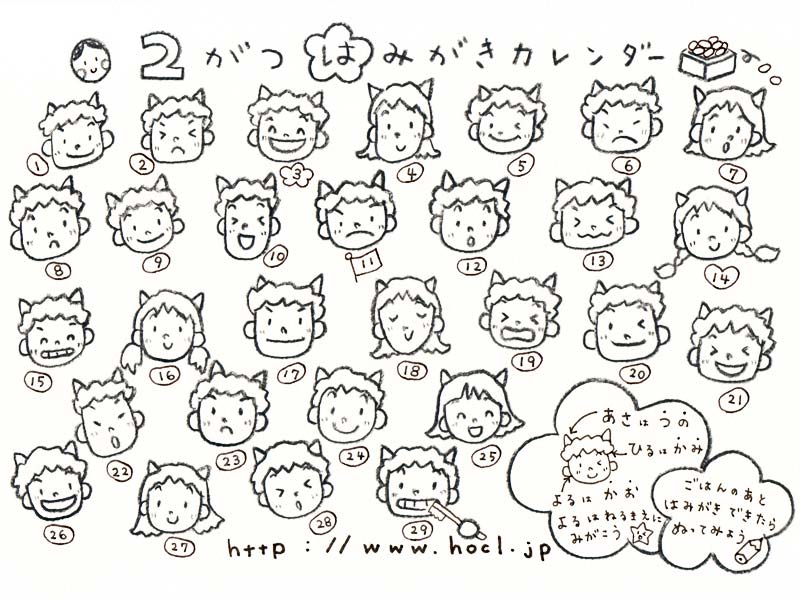 2がつはみがきカレンダー
1 2 3 4 5 6 7
8 9 10 11 12 13 14
15 16 17 18 19 20 21
22 23 24 25
26 27 28 29
あさは つの
ひるは かみ
よるは かお
よるは ねるまえに
みがこう
ごはんの あと
はみがき できたら
ぬってみよう
http://www.hocl.jp